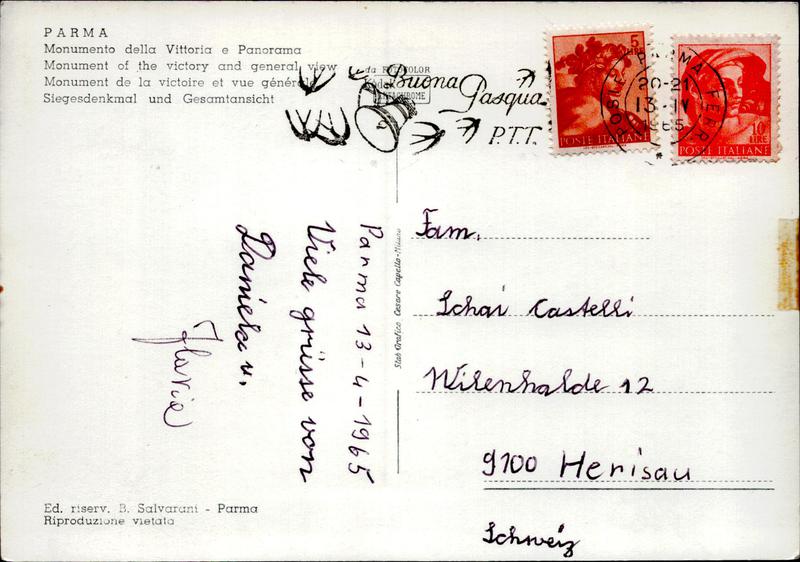 PARMA
Monumento della Vittoria e Panorama
Monument of the victory and general view
Monument de la victoire et vue générale
Siegesdenkmal und Gesamtansicht
da FOTOCOLOR
Buona
Pasqua
P.T.T.
5
LIRE
POSTE ITALIANE
PARMA FERR.
POSTE
20-21
13 - IV
1965
10
LIRE
POSTE ITALIANE
Parma 13-4-1965
Viele grüsse von
Daniela u.
Flavia
Stab Grafico Cesare Capello-Milano
Fam.
Schai Castelli
Wilenhalde 12
9100 Herisau
Schweiz
Ed. riserv. B. Salvarani - Parma
Riproduzione vietata